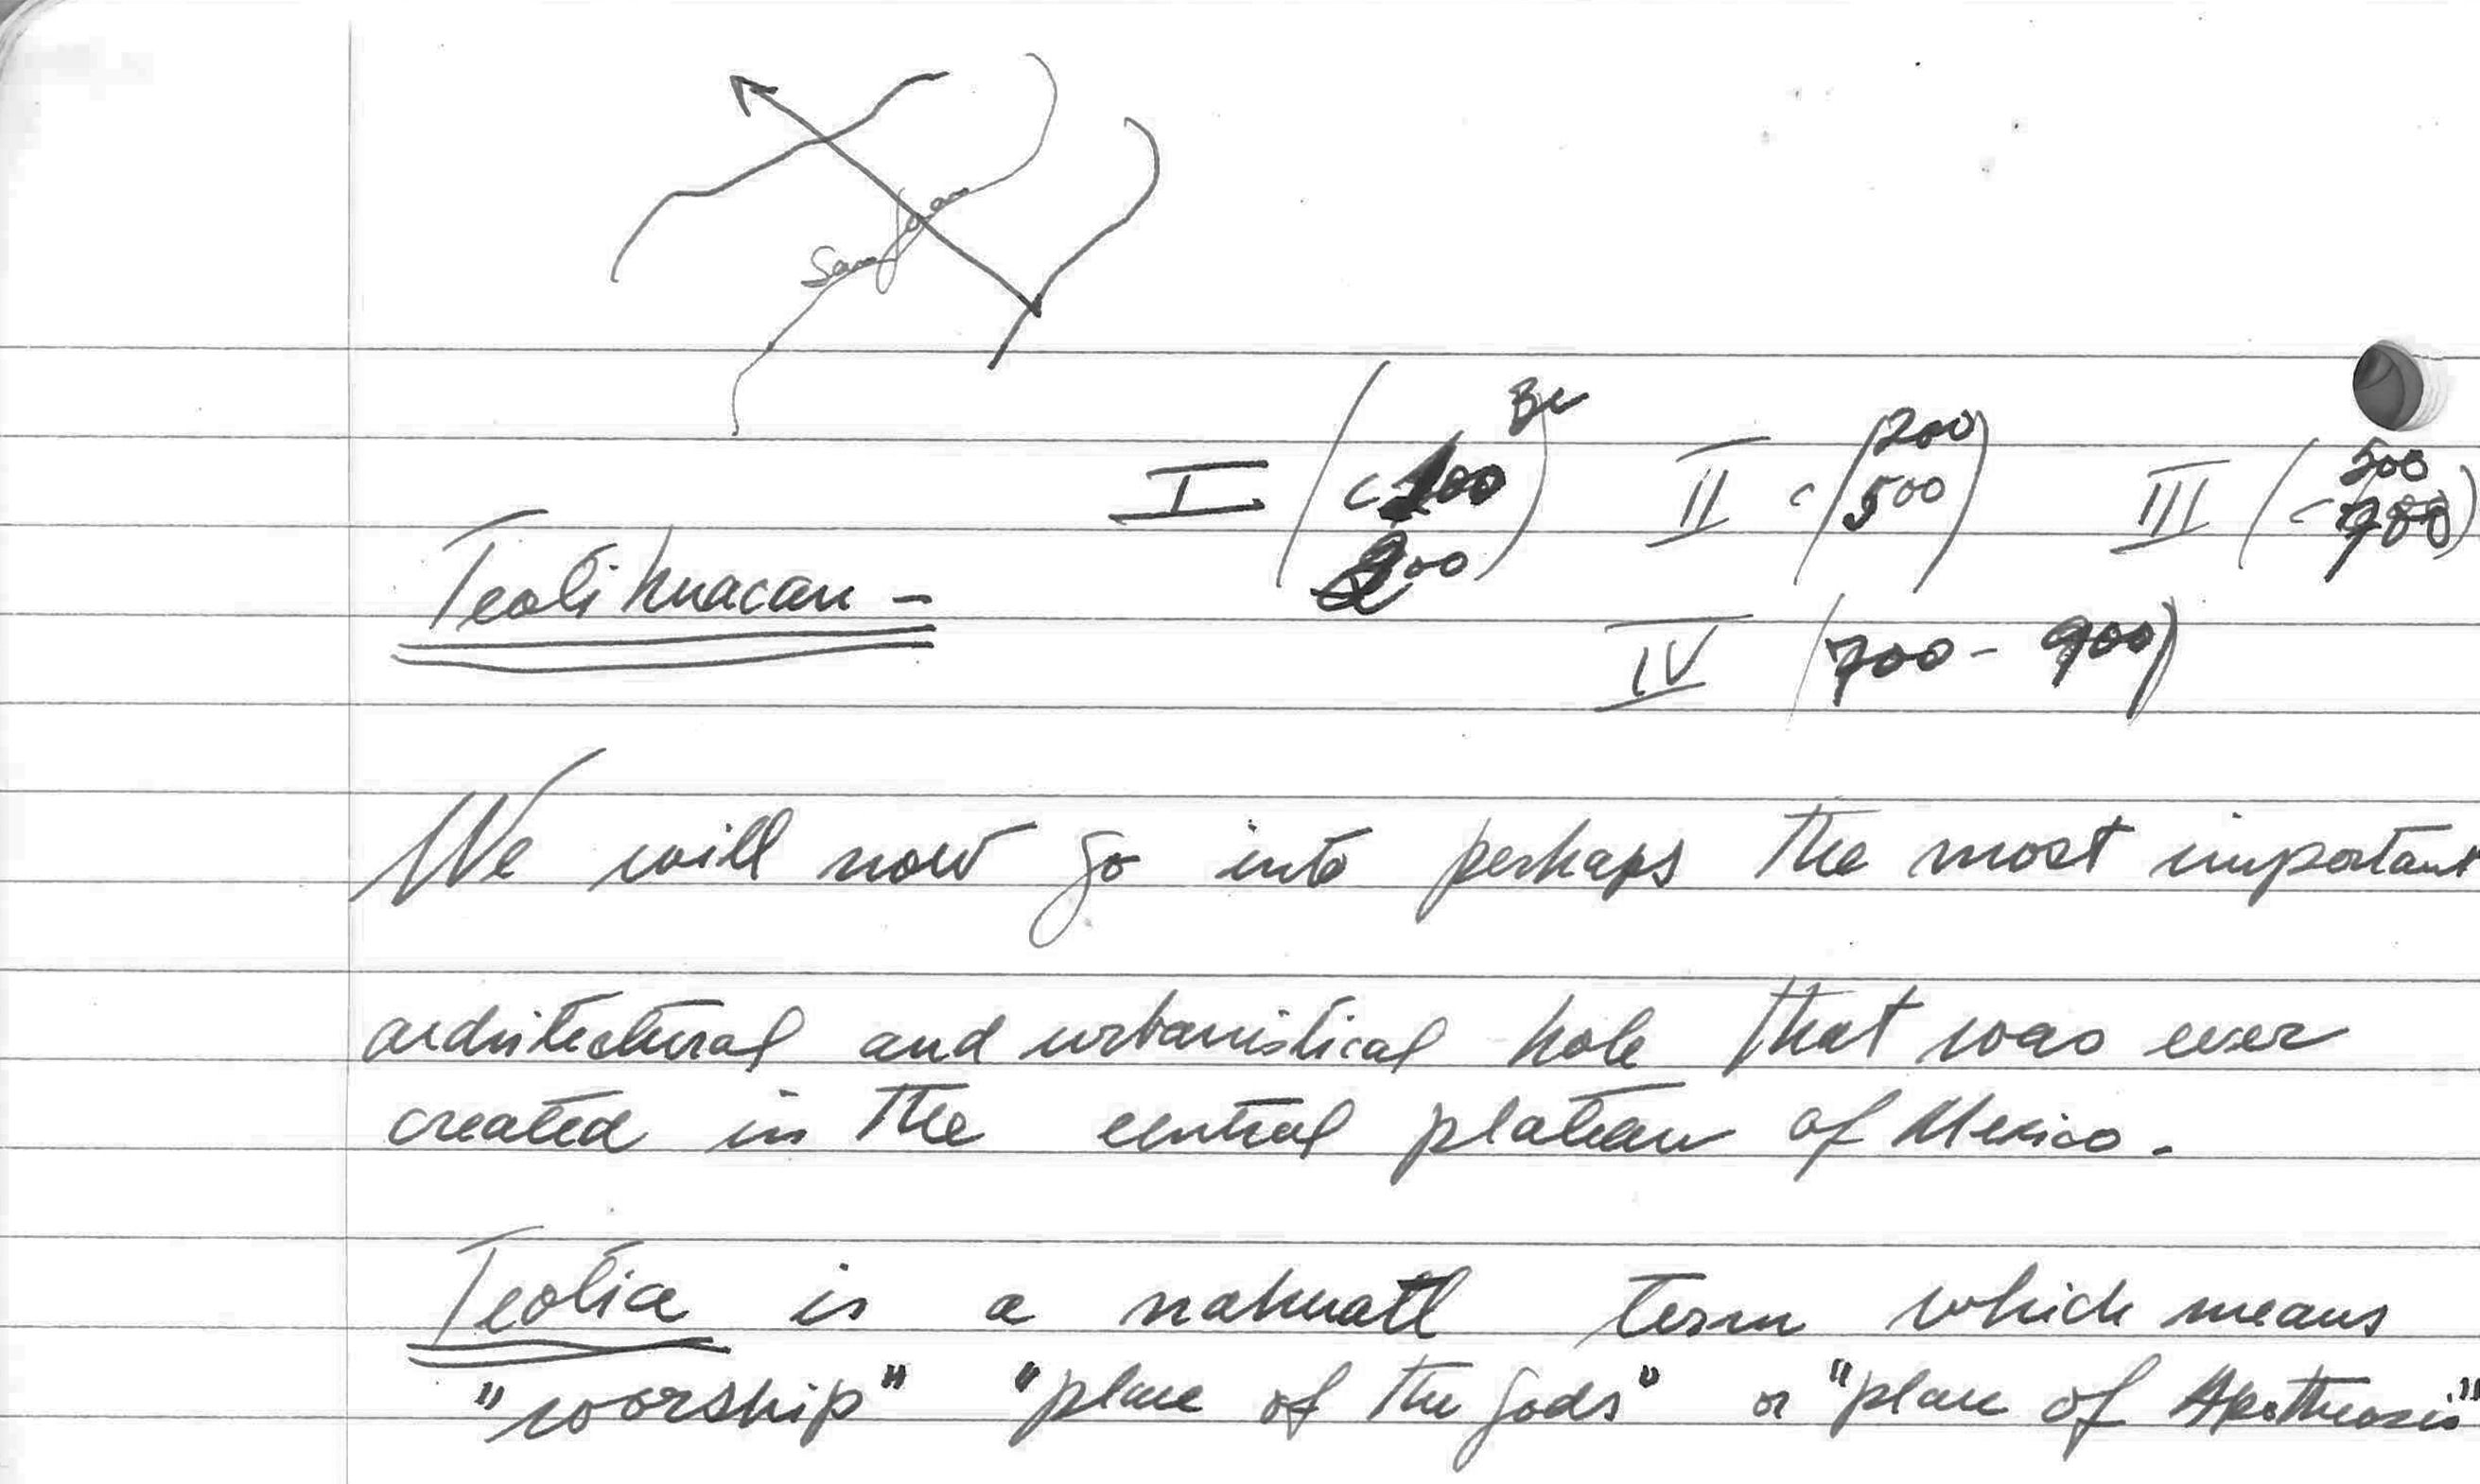 San Juan
BC
I (c 100 II c (200 III (500
200) 500) c 700)
Teotihuacan -
IV (700 - 900)
We will now go into perhaps the most important
architectural and urbanistical hole that was ever
created in the central plateau of Mexico -
Teotia is a nahuatl term which means
"worship" "place of the gods" or "place of Apotheosis"